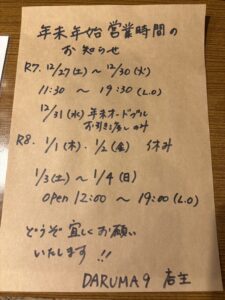 年末年始営業時間の
お知らせ
R7. 12/27(土)～12/30(火)
11:30 ～ 19:30 (L.O)
12/31(水) 年末オードブル
お引き渡しのみ
R8. 1/1(木)・1/2(金) 休み
1/3(土)～1/4(日)
open 12:00 ～ 19:00 (L.O)
どうぞ宜しくお願い
いたします!!
DARUMA9 店主